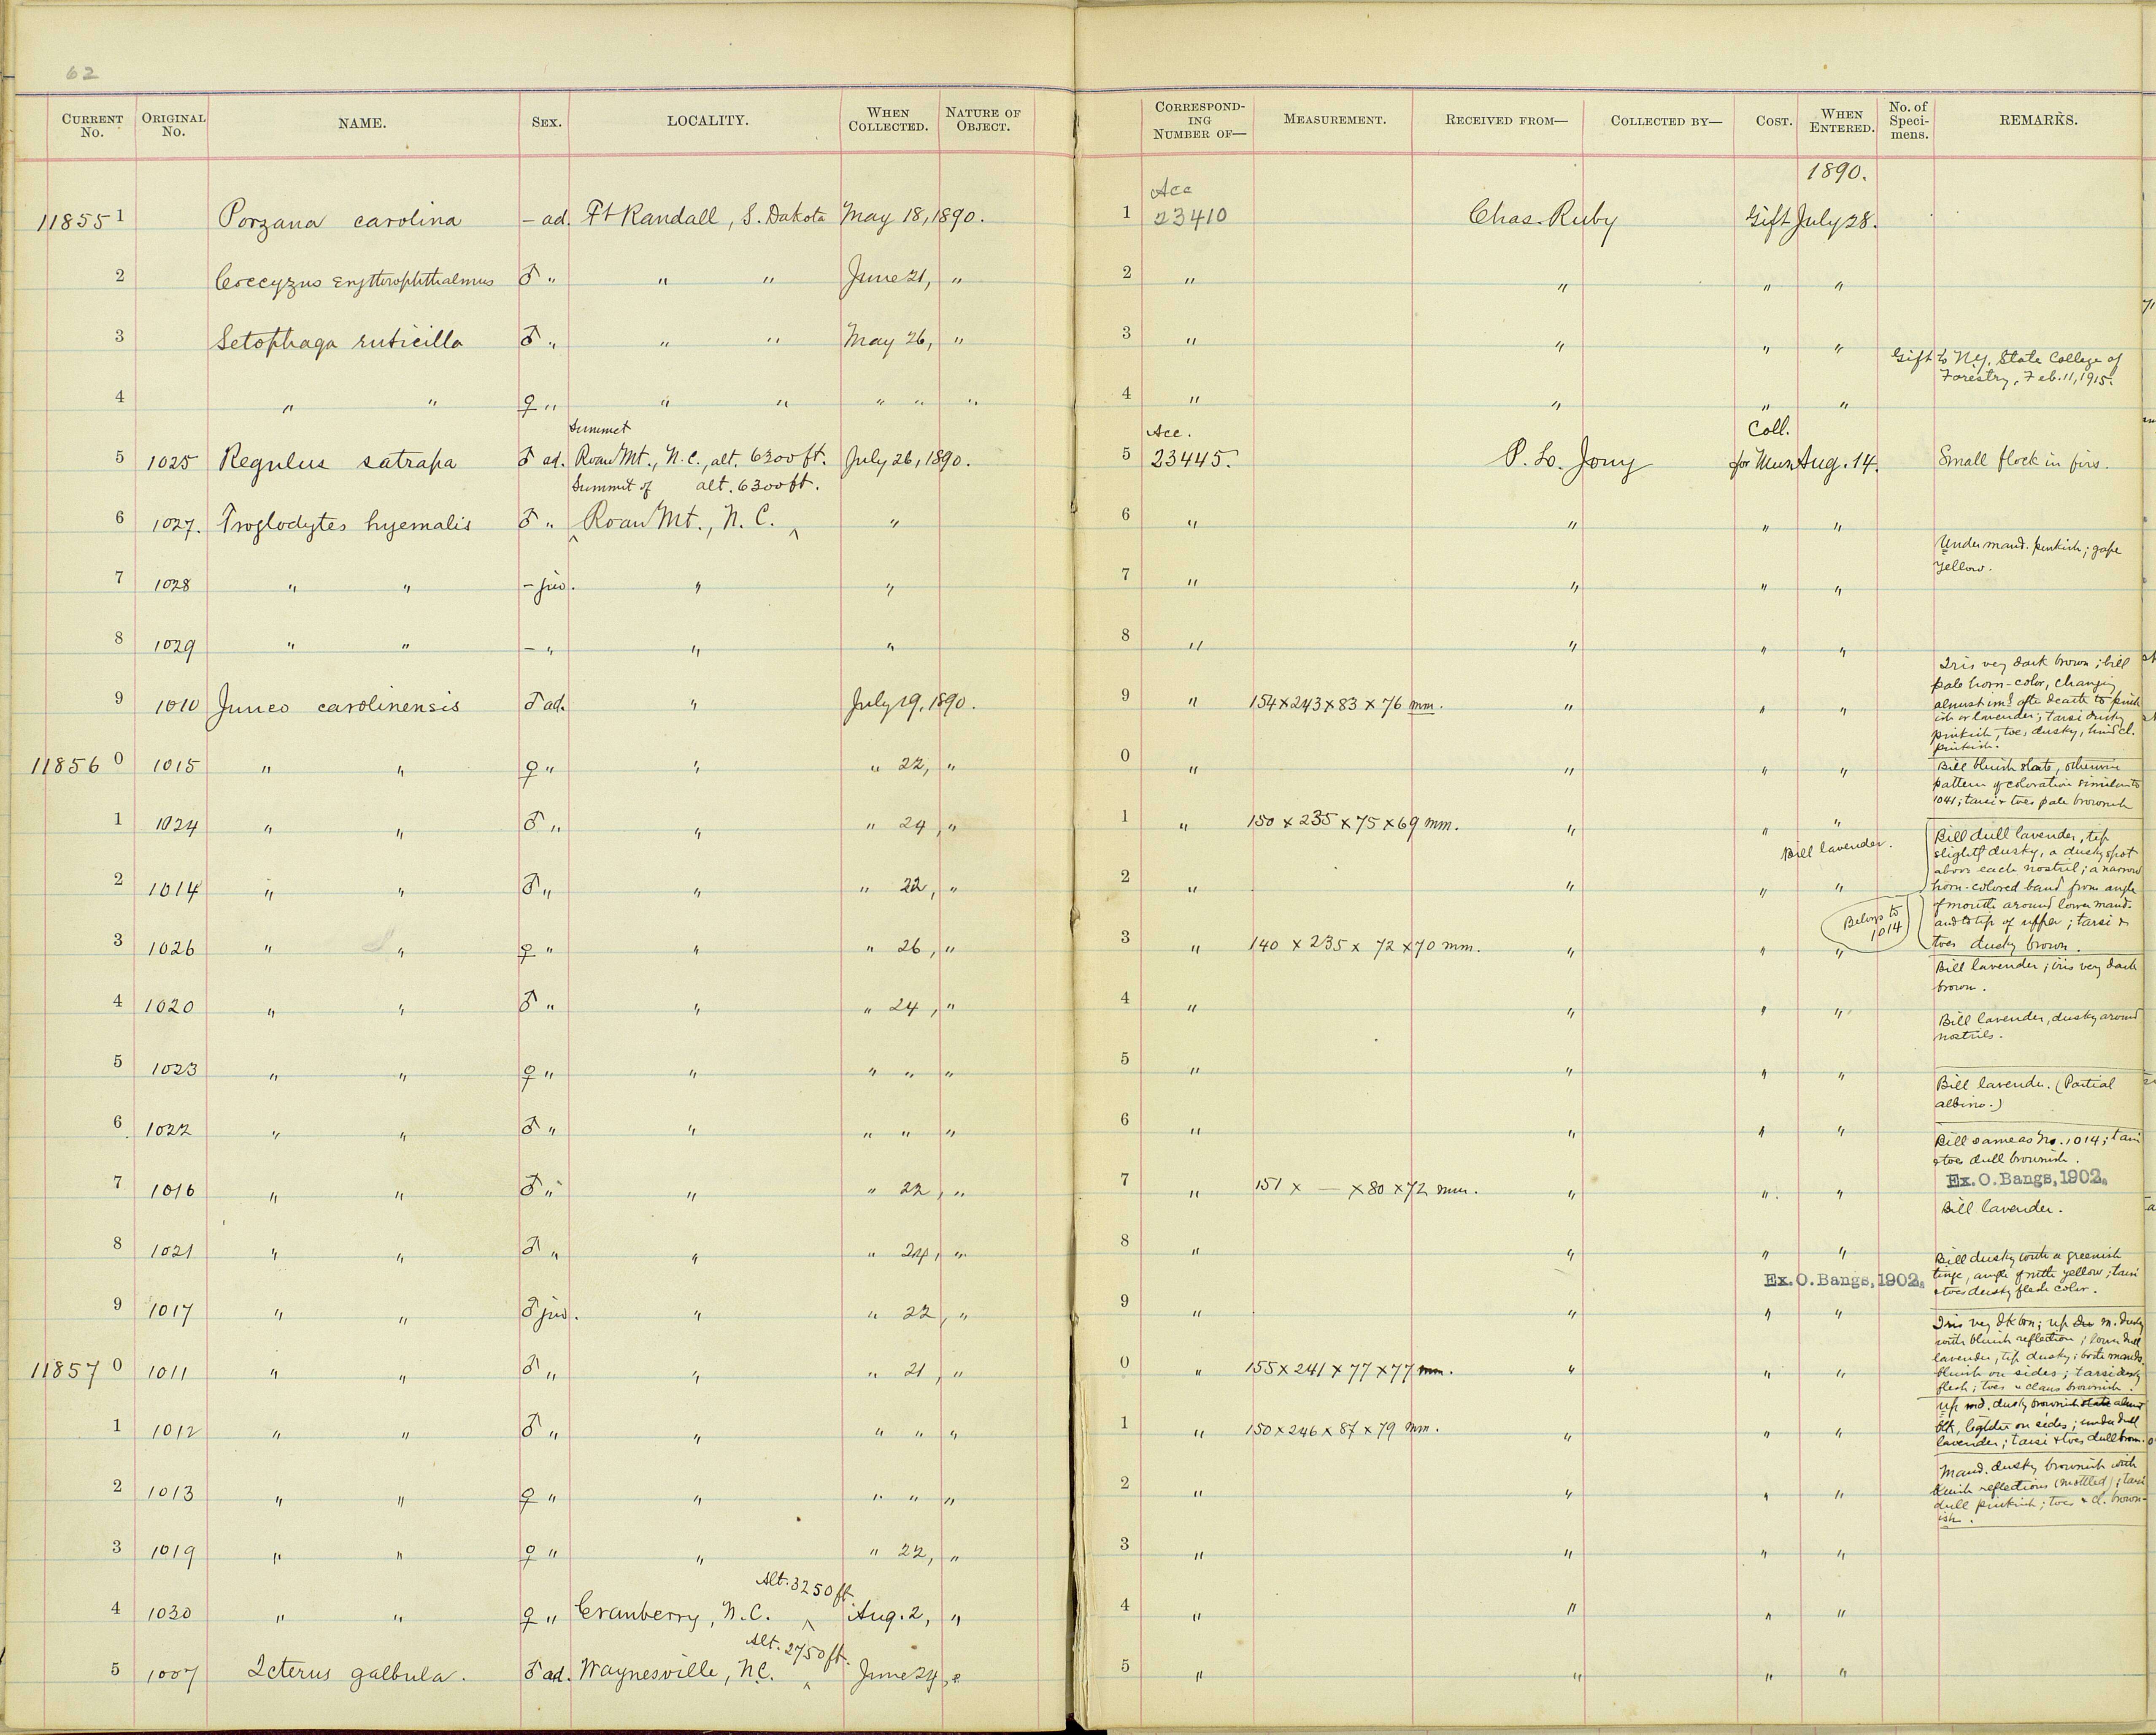 62
CURRENT No. ORIGINAL No. NAME. SEX. LOCALITY. WHEN COLLECTED. NATURE OF OBJECT. CORRESPONDING NUMBER OF— MEASUREMENT. RECEIVED FROM— COLLECTED BY— COST. WHEN ENTERED. No. of Specimens. REMARKS.
1890.
Acc
11855 1 Porzana carolina – ad. Ft Randall, S. Dakota May 18, 1890. 1 23410 Chas. Ruby Gift July 28.
2 Coccyzus erythrophthalmus ♂ " " " June 21, " 2 " " " "
3 Setophaga ruticilla ♂ " " " May 26, " 3 " " " "
Gift to N.Y. State College of
Forestry, Feb. 11, 1915.
4 " " ♀ " " " " " " 4 " " " "
Summit Acc. Coll.
5 1025 Regulus satrapa ♂ ad. Roan Mt., N.C., alt. 6300 ft. July 26, 1890. 5 23445. P. L. Jouy for Mus Aug. 14. Small flock in firs.
Summit of alt. 6300 ft.
6 1027. Troglodytes hyemalis ♂ " Roan Mt., N.C. " 6 " " " "
Under mand. pinkish; gape
yellow.
7 1028 " " – juv. " " 7 " " " "
8 1029 " " – " " " 8 " " " "
Iris very dark brown; bill
pale horn-color, changing
almost imd. after death to pink
ish or lavender; tarsi dusky
pinkish, toes dusky, hind cl.
pinkish.
9 1010 Junco carolinensis ♂ ad. " July 19, 1890. 9 " 154 x 243 x 83 x 76 mm. " " "
11856 0 1015 " " ♀ " " " 22, " 0 " " " "
Bill bluish slate, otherwise
pattern of coloration similar to
1041; tarsi & toes pale brownish
1 1024 " " ♂ " " " 24, " 1 " 150 x 235 x 75 x 69 mm. " " "
Bill lavender.
2 1014 " " ♂ " " " 22, " 2 " " " "
Bill dull lavender, tip
slightly dusky, a dusky spot
above each nostril; a narrow
horn-colored band from angle
of mouth around lower mand.
and to tip of upper; tarsi &
toes dusky brown.
Belongs to
1014
3 1026 " " ♀ " " " 26, " 3 " 140 x 235 x 72 x 70 mm. " " "
Bill lavender; iris very dark
brown.
4 1020 " " ♂ " " " 24, " 4 " " " "
Bill lavender, dusky around
nostrils.
5 1023 " " ♀ " " " " " 5 " " " "
Bill lavender. (Partial
albino.)
6 1022 " " ♂ " " " " " 6 " " " "
Bill same as No. 1014; tarsi
& toes dull brownish.
Ex. O. Bangs, 1902.
7 1016 " " ♂ " " " 22, " 7 " 151 x — x 80 x 72 mm. " " "
Bill lavender.
8 1021 " " ♂ " " " 24, " 8 " " " "
Ex. O. Bangs, 1902.
Bill dusky with a greenish
tinge, angle of mth yellow; tarsi
& toes dusky flesh color.
9 1017 " " ♂ juv. " " 22, " 9 " " " "
Iris very dk bn; up m. dusky
with bluish reflection; lower dull
lavender, tip dusky; both mands.
bluish on sides; tarsi dusky
flesh; toes & claws brownish.
11857 0 1011 " " ♂ " " " 21, " 0 " 155 x 241 x 77 x 77 mm. " " "
Up md. dusky brownish slate almost
blk, lighter on sides; under dull
lavender; tarsi & toes dull brown.
1 1012 " " ♂ " " " " " 1 " 150 x 246 x 87 x 79 mm. " " "
Mand. dusky brownish with
bluish reflections (mottled); tarsi
dull pinkish; toes & cl. brown-
ish.
2 1013 " " ♀ " " " " " 2 " " " "
3 1019 " " ♀ " " " 22, " 3 " " " "
Alt. 3250 ft.
4 1030 " " ♀ " Cranberry, N.C. Aug. 2, " 4 " " " "
Alt. 2750 ft.
5 1007 Icterus galbula. ♂ ad. Waynesville, N.C. June 24, " 5 " " " "